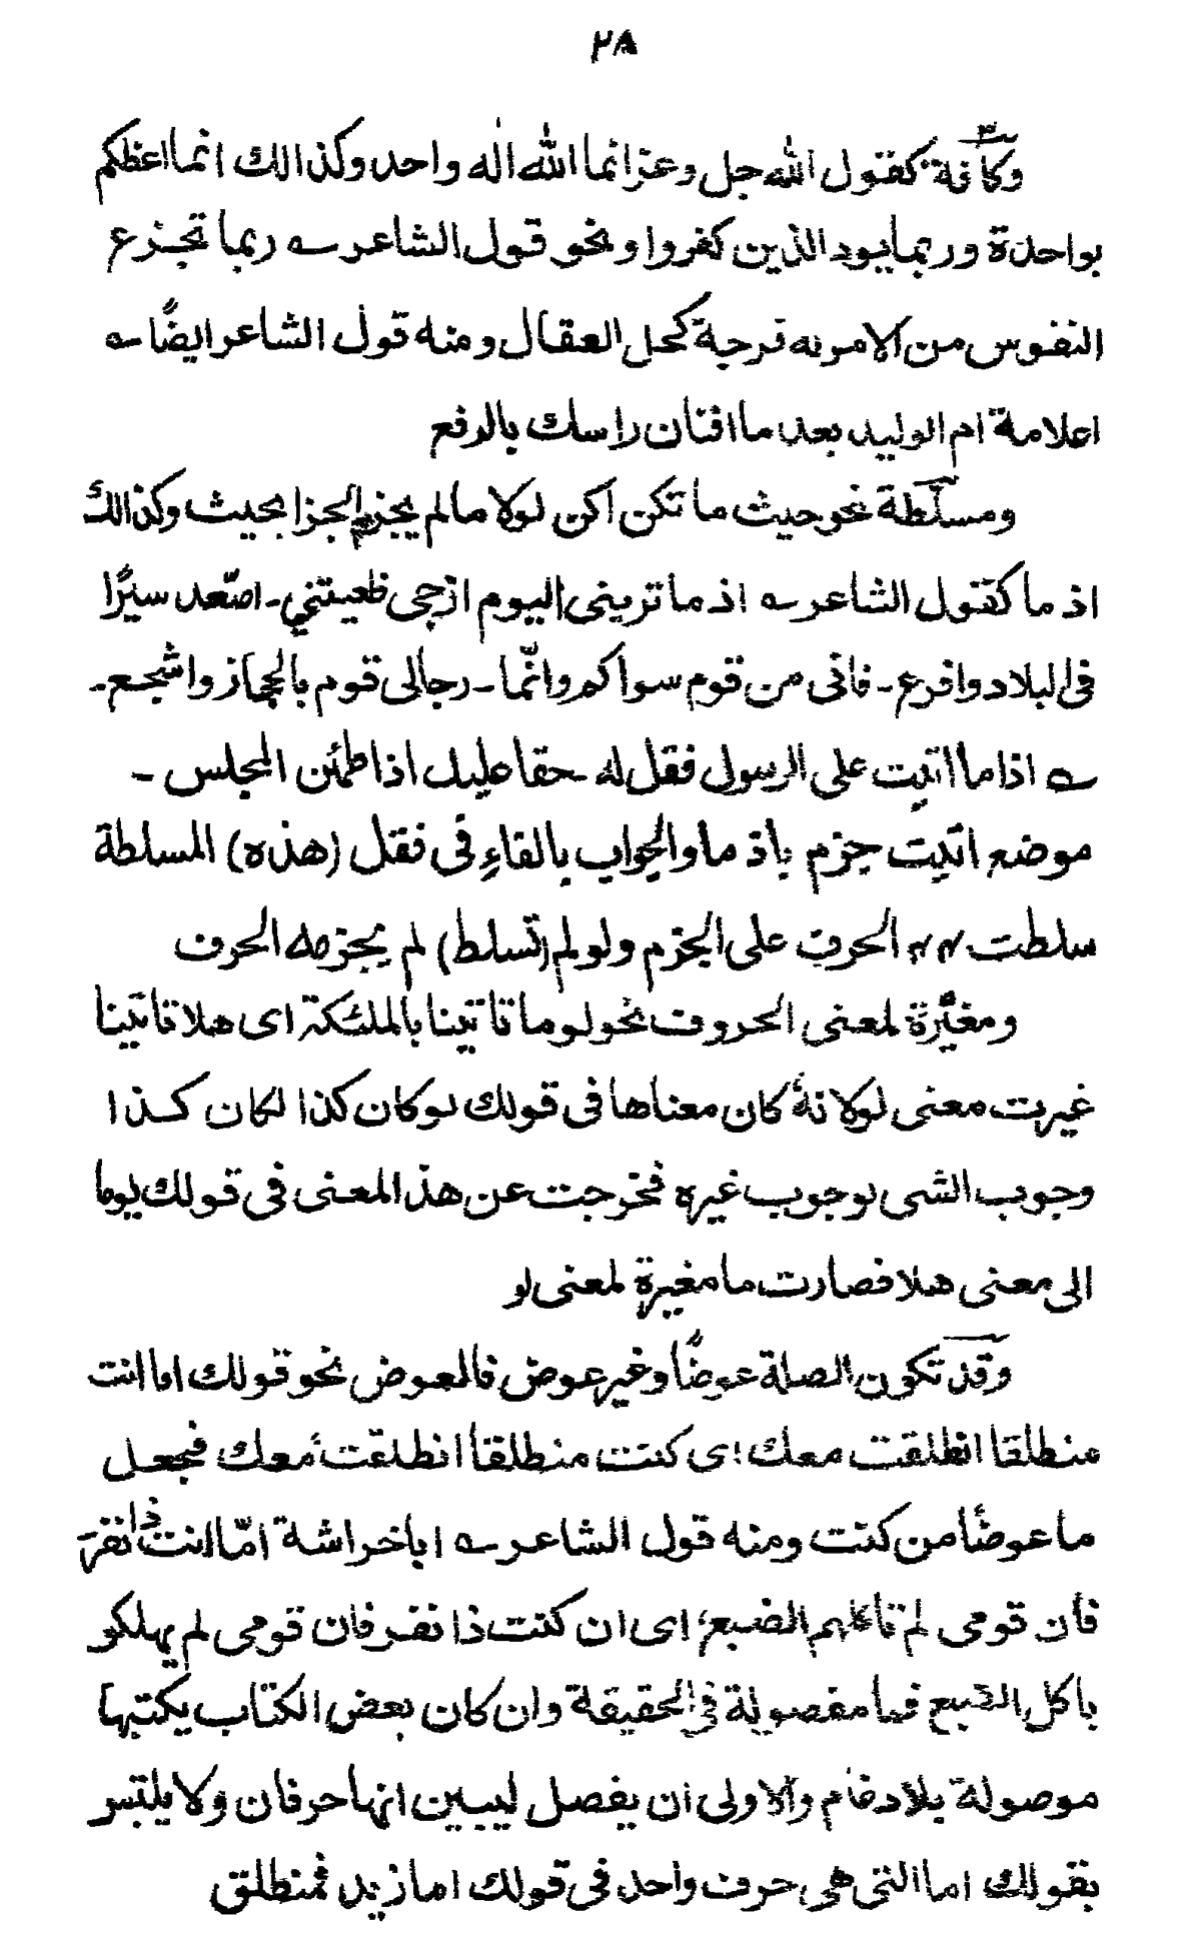 ٢٨
وكآفة كقول الله جل وعز انما الله اله واحد وكذالك انما اعظكم
بواحدة وربما يود الذين كفروا ونحو قول الشاعر ؎ ربما تجزع
النفوس من الامر له فرجة كحل العقال ومنه قول الشاعر ايضًا ؎
اعلامة ام الوليد بعد ما افنان راسك بالرفع
ومسلّطة نحو حيث ما تكن اكن لولا ما لم يجزم الجزا بحيث وكذالك
اذ ما كقول الشاعر ؎ اذ ما تريني اليوم ازجى ظعينتي ۔ اصّعد سيرًا
فى البلاد وافرع ۔ فانى من قوم سواكم وانّما ۔ رجالى قوم بالحجاز واشجع ۔
؎ اذا ما اتيت على الرسول فقل له ۔ حقا عليك اذا طمئن المجلس ۔
موضع اتيت جزم باذ ما والجواب بالفاءِ فى فقل (هذه) المسلطة
سلطت ״״ الحرف على الجزم ولو لم (تسلط) لم يجزمه الحرف
ومغيّرة لمعنى الحروف نحو لوما تاتينا بالملئكة اى هلا تاتينا
غيرت معنى لو لانهٗ كان معناها فى قولك لو كان كذا لكان كذا
وجوب الشى لوجوب غيره فخرجت عن هذ المعنى فى قولك لوما
الى معنى هلا فصارت ما مغيرة لمعنى لو
وقد تكون الصلة عوضًا وغير عوض فالعوض نحو قولك اما انت
منطلقا انطلقت معك اى كنت منطلقا انطلقت معك فجعل
ما عوضًا من كنت ومنه قول الشاعر ؎ ابا خراشة امّا انت ذا نفر
فان قومى لم تاكلهم الضبع؛ اى ان كنت ذا نفر فان قومى لم يهلكو
باكل الضبع فما مفصولة فى الحقيقة وان كان بعض الكتاب يكتبها
موصولة بلادغام والاولى ان يفصل ليبين انها حرفان ولا يلتبس
بقولك اما التى هى حرف واحد فى قولك اما زيد فمنطلق